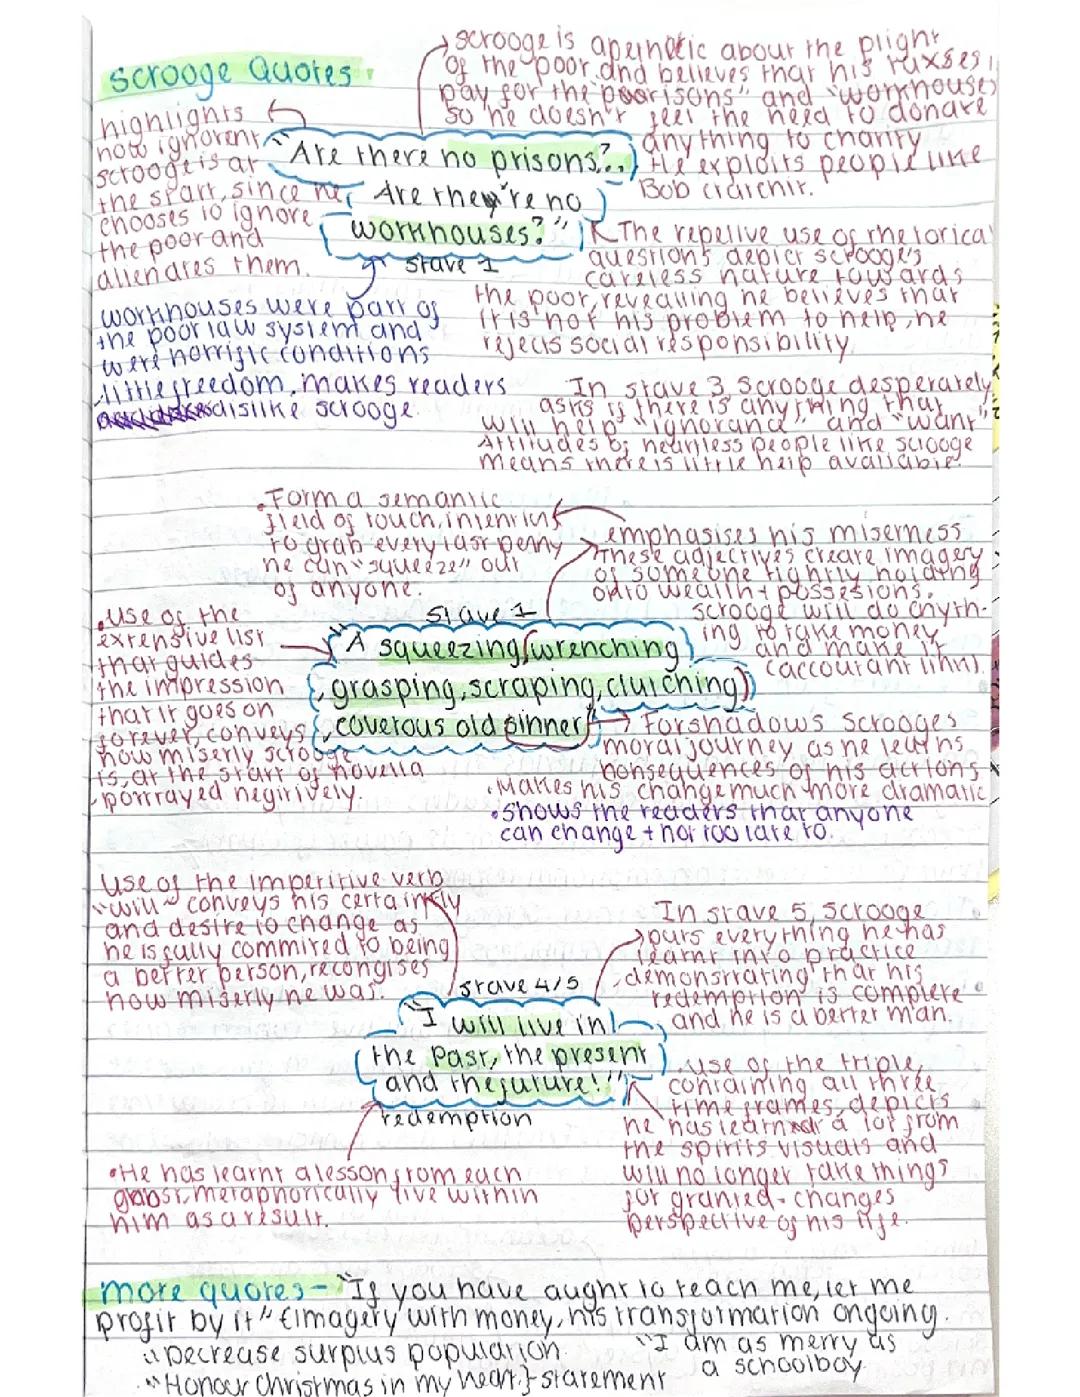 Scrooge Quotes
scrooge is apethetic about the plight
of the poor and believes that his taxses
pay for the "poorisons" and "workhouses"
so he doesn't feel the need to donate
anything to charity
He exploits people like
Bob cratchit.
highlights
how ignorent
scrooge is at
the start, since he
chooses to ignore
the poor and
alienates them.
"Are there no prisons?..
Are they're no
workhouses?"
stave 1
The repetive use of rhetorical
questions depict scrooge's
careless nature towards
the poor, revealing he believes that
it is not his problem to help, he
rejects social responsibility
workhouses were part of
the poor law system and
were horrific conditions
little freedom, makes readers
dislike scrooge.
In stave 3, Scrooge desperately
asks if there is anything that
will help "ignorance" and "want"
Attitudes of heartless people like scrooge
means there is little help available.
•Form a semantic
field of touch, intening
to grab every last penny
he can "squeeze" out
of anyone.
emphasises his miserness
These adjectives create imagery
of someone tightly holding
onto wealth + possesions.
scrooge will do anyth-
ing to take money
and make it
(accountant link).
•use of the
extensive list
that guides
the impression
that it goes on
forever, conveys
how miserly scrooge
is at the start of novella
•portrayed negitively.
stave 1
"A squeezing, wrenching
, grasping, scraping, clutching,
, covetous old sinner"
Forshadows Scrooges
moral journey as he learns
consequences of his actions
•Makes his change much more dramatic
•Shows the readers that anyone
can change + not too late to.
Use of the imperitive verb
"will" conveys his certaintly
and desire to change as
he is fully commited to being
a better person, recongises
how miserly he was.
In stave 5, scrooge
puts everything he has
learnt into practice
demonstrating that his
redemption is complete
and he is a better man.
stave 4/5
"I will live in
the Past, the present
and the future!"
redemption
•use of the triple,
containing all three
time frames, depicts
he has learnt a lot from
the spirits visuals and
will no longer take things
for granted - changes
perspective of his life.
•He has learnt a lesson from each
ghost, metaphorically live within
him as a result.
more quotes - "If you have aught to teach me, let me
profit by it" {imagery with money, his transformation ongoing.
"Decrease surplus population
"I am as merry as
a schoolboy
"Honour christmas in my heart }statement